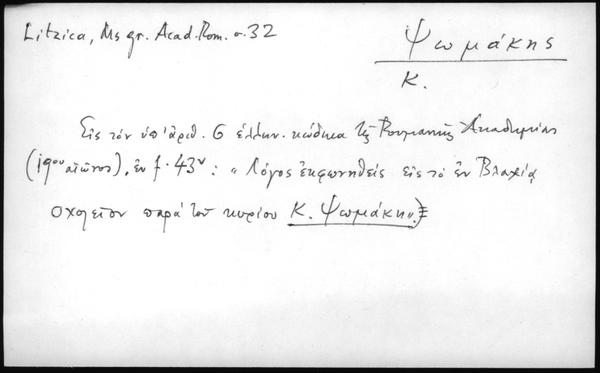 Litzica, Ms gr. Acad. Rom. σ. 32
Ψωμάκης
Κ.
Εἰς τὸν ὑπ' ἀριθ. 6 ἑλλην. κώδικα τῆς Ρουμανικῆς Ἀκαδημίας
(19ου αἰῶνος), ἐν f. 43v : « Λόγος ἐκφωνηθεὶς εἰς τὸ ἐν Βλαχίᾳ
σχολεῖον παρὰ τοῦ κυρίου Κ. Ψωμάκη ».